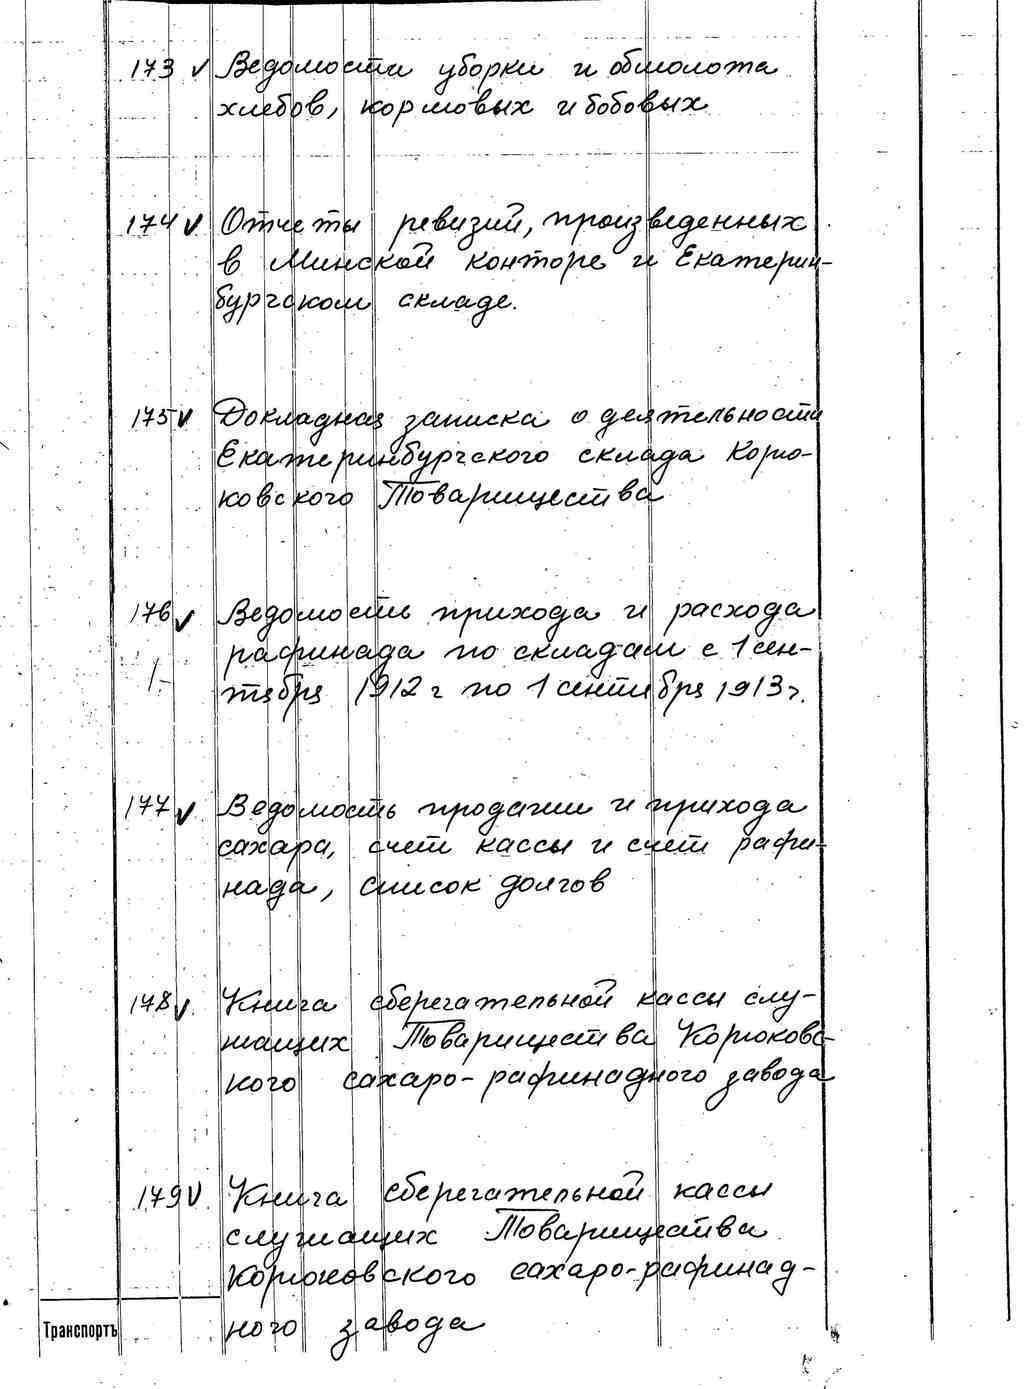 173 v Ведомости уборки и обмолота
хлебов, кормовых и бобовых
174 v Отчеты ревизий, произведенных
в Минской конторе и Екатерин-
бургском складе.
175 v Докладная записка о деятельности
Екатеринбургского склада Корю-
ковского Товарищества
176 v Ведомость прихода и расхода
рафинада по складам с 1 сен-
тября 1912 г по 1 сентября 1913 г.
177 v Ведомость продажи и прихода
сахара, счет кассы и счет рафи-
нада, список долгов
178 v Книга сберегательной кассы слу-
жащих Товарищества Корюковс-
кого сахаро-рафинадного завода
179 v Книга сберегательной кассы
служащих Товарищества
Корюковского сахаро-рафинад-
Транспортъ ного завода